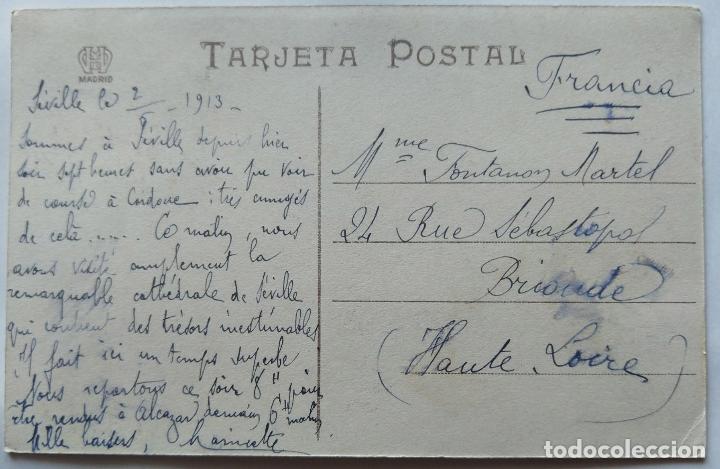 MADRID
TARJETA POSTAL
Séville le 2 1913
Francia
Sommes à Séville depuis hier
soir sept heures sans avoir pu voir
de course à Cordoue : très ennuyés
de cela ..... Ce matin, nous
avons visité amplement la
remarquable cathédrale de Séville
qui contient des trésors inestimables
Il fait ici un temps superbe
Nous repartons ce soir 8h pour
être rendus à Alcazar demain 6h matin
Mille baisers,
Mme Fontanon Martel
24 Rue Sébastopol
Brioude
(Haute Loire)
todocoleccion